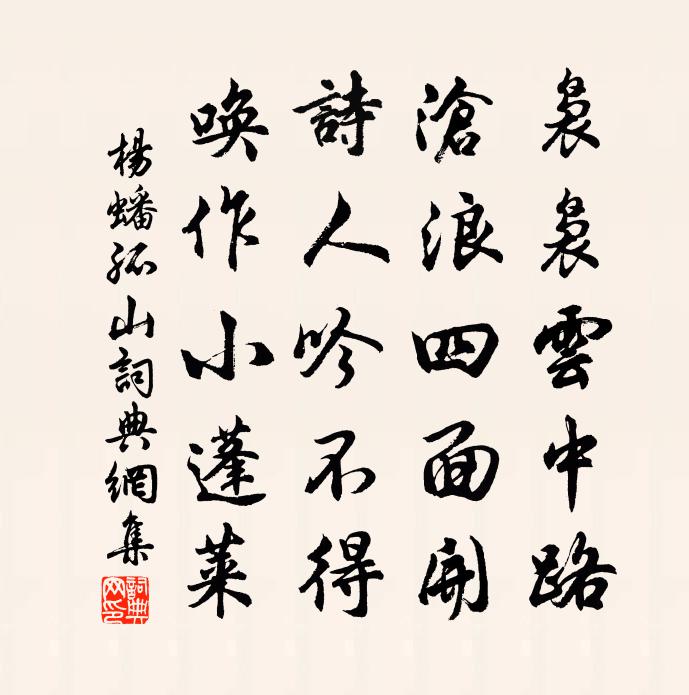 裊裊雲中路
滄浪四面開
詩人吟不得
喚作小蓬萊
楊蟠孤山詞典網集
詞典網印